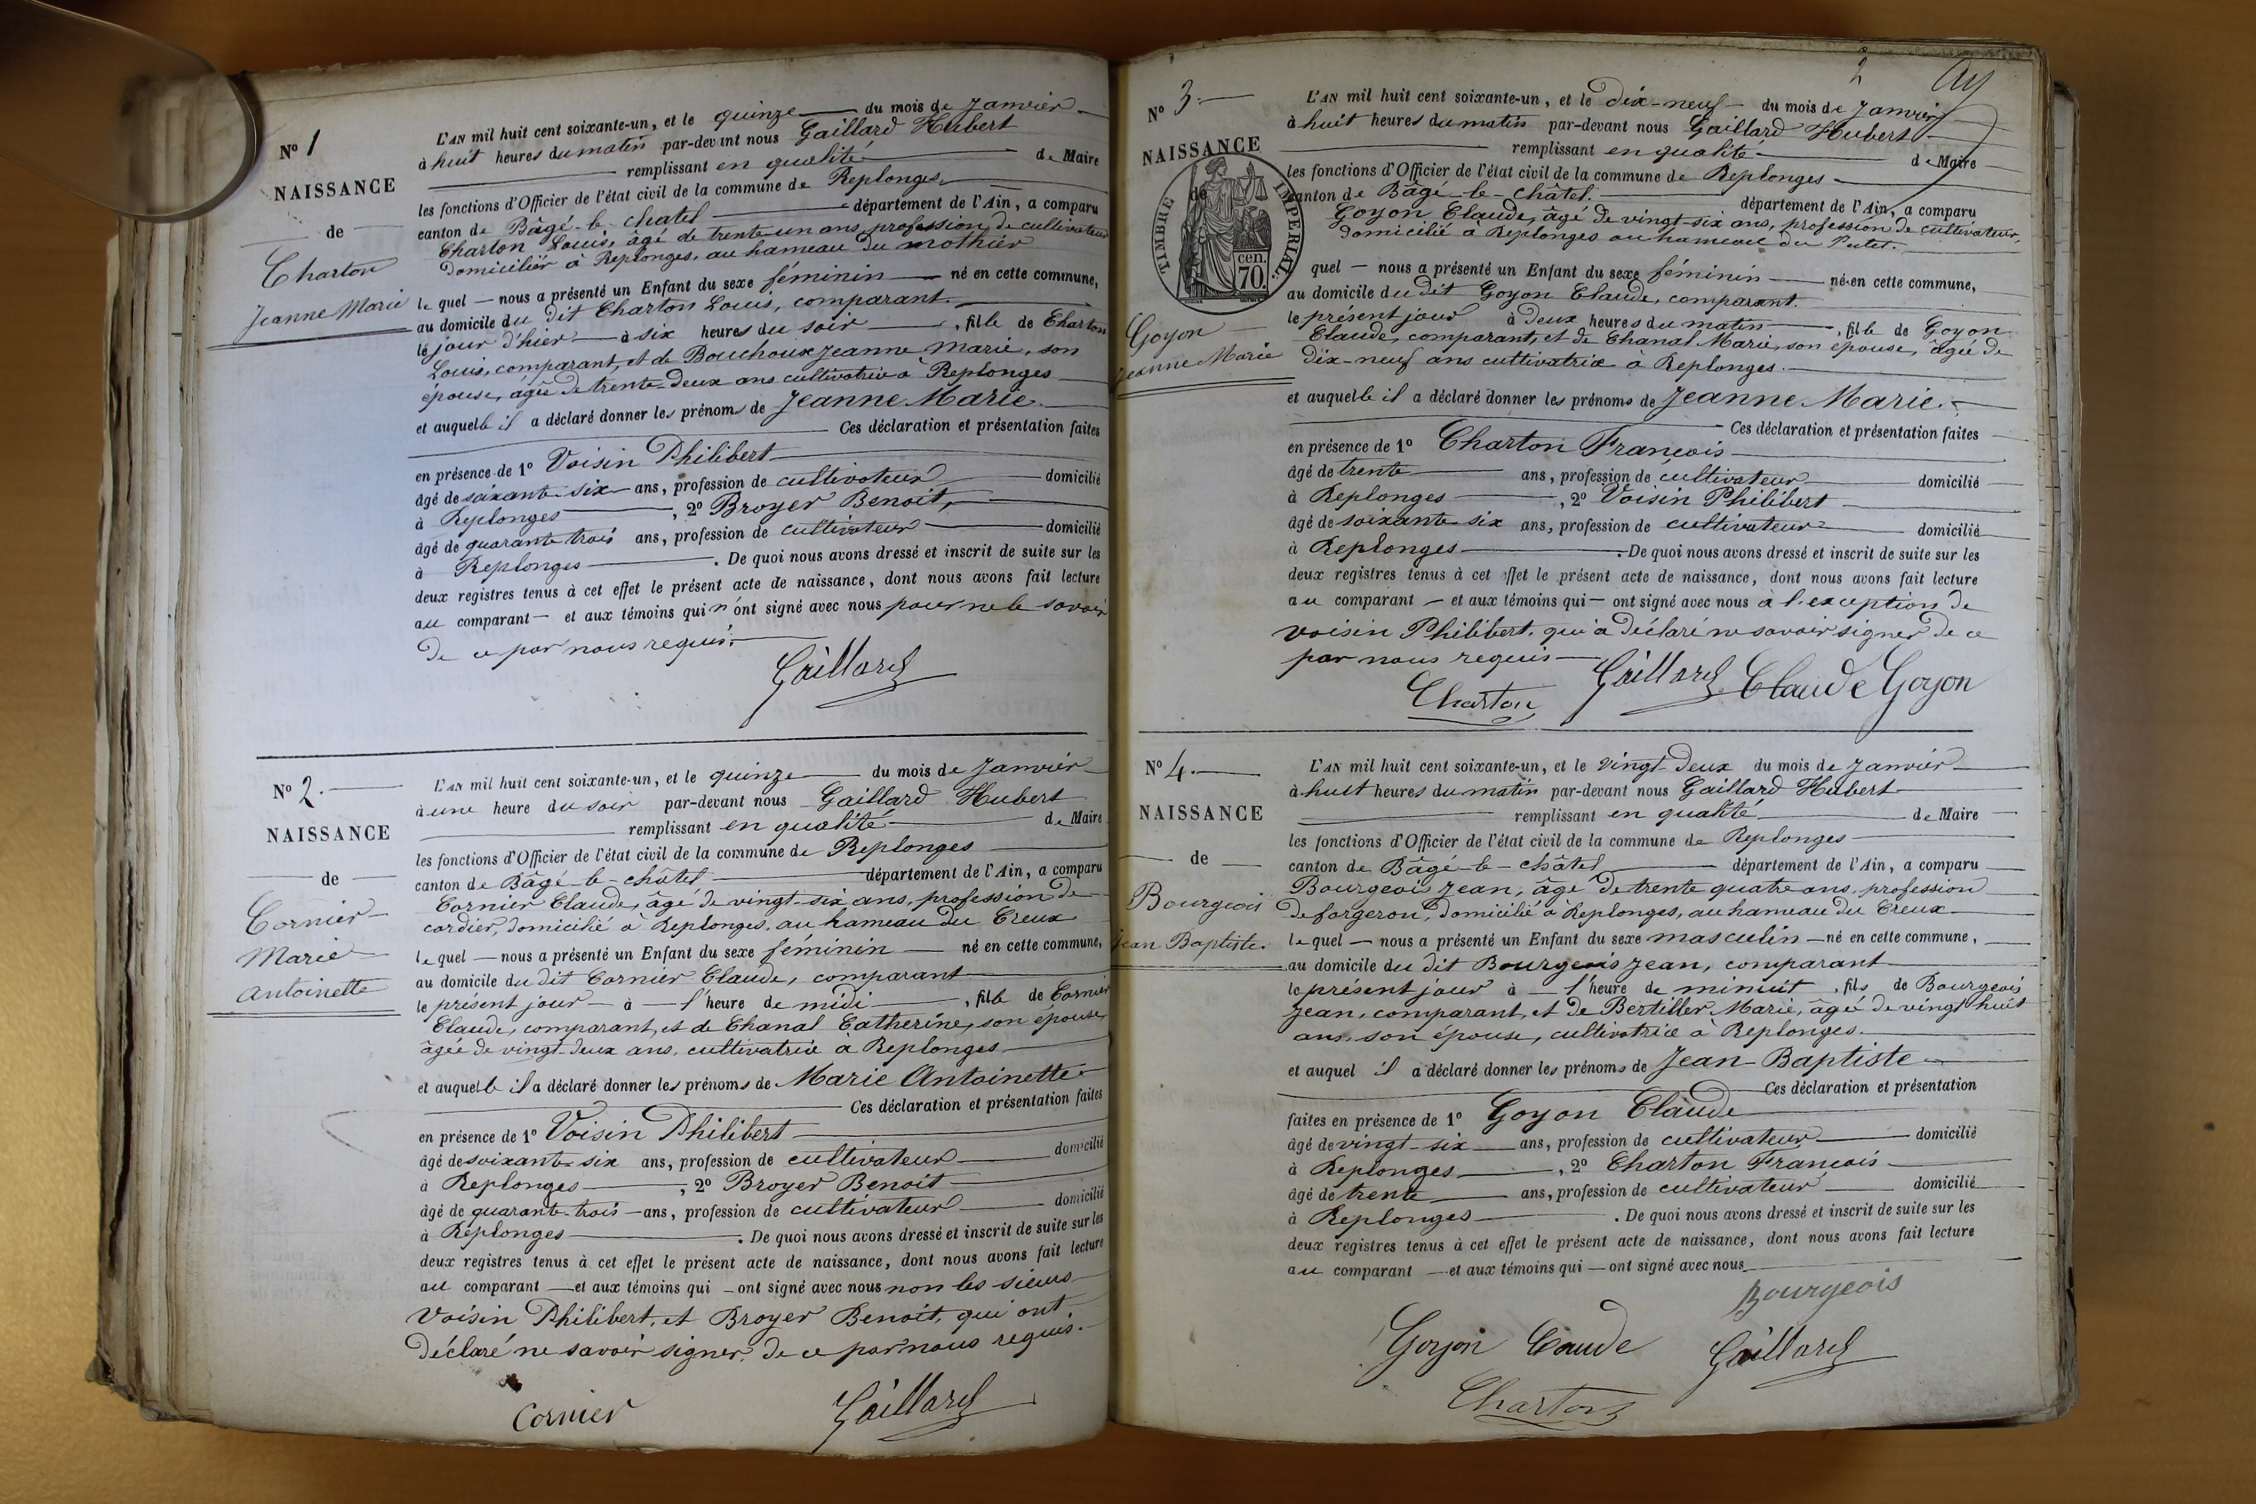 N° 1
NAISSANCE
de
Charton
Jeanne Marie
L'AN mil huit cent soixante-un, et le quinze du mois de Janvier
à huit heures du matin par-devant nous Gaillard Hubert
remplissant en qualité de Maire
les fonctions d'Officier de l'état civil de la commune de Replonges
canton de Bâgé-le-chatel département de l'Ain, a comparu
Charton Louis, âgé de trente un ans, profession de cultivateur
domicilièr à Replonges, au hameau du mothier
lequel — nous a présenté un Enfant du sexe féminin né en cette commune,
au domicile du dit Charton Louis, comparant
le jour d'hier à six heures du soir, fille de Charton
Louis, comparant, et de Bouchoux Jeanne Marie, son
épouse, âgée de trente-deux ans cultivatrice à Replonges
et auquelle il a déclaré donner les prénoms de Jeanne Marie
Ces déclaration et présentation faites
en présence de 1° Voisin Philibert
âgé de soixante-six ans, profession de cultivateur domicilié
à Replonges, 2° Broyer Benoit,
âgé de quarante trois ans, profession de cultivateur domicilié
à Replonges. De quoi nous avons dressé et inscrit de suite sur les
deux registres tenus à cet effet le présent acte de naissance, dont nous avons fait lecture
au comparant — et aux témoins qui n'ont signé avec nous pour ne le savoir
de ce par nous requis.
Gaillard
N° 2.
NAISSANCE
de
Cornier
Marie
Antoinette
L'AN mil huit cent soixante-un, et le quinze du mois de Janvier
à une heure du soir par-devant nous Gaillard Hubert
remplissant en qualité de Maire
les fonctions d'Officier de l'état civil de la commune de Replonges
canton de Bâgé-le-châtel département de l'Ain, a comparu
Cornier Claude, âgé de vingt-six ans, profession de
cordier, domicilié à Replonges, au hameau du Creux
lequel — nous a présenté un Enfant du sexe féminin né en cette commune,
au domicile du dit Cornier Claude, comparant
le présent jour à — l'heure de midi, fille de Cornier
Claude, comparant, et de Chanal Catherine, son épouse
âgée de vingt-deux ans, cultivatrice a Replonges
et auquelle il a déclaré donner les prénoms de Marie Antoinette
Ces déclaration et présentation faites
en présence de 1° Voisin Philibert
âgé de soixante-six ans, profession de cultivateur domicilié
à Replonges, 2° Broyer Benoit
âgé de quarante-trois ans, profession de cultivateur domicilié
à Replonges. De quoi nous avons dressé et inscrit de suite sur les
deux registres tenus à cet effet le présent acte de naissance, dont nous avons fait lecture
au comparant — et aux témoins qui — ont signé avec nous non les sieurs
Voisin Philibert, et Broyer Benoit, qui ont
déclaré ne savoir signer, de ce par nous requis.
Cornier Gaillard
2
N° 3.
NAISSANCE
de
TIMBRE IMPERIAL.
cen.
70.
Goyon
Jeanne Marie
L'AN mil huit cent soixante-un, et le dix-neuf du mois de Janvier
à huit heures du matin par-devant nous Gaillard Hubert
remplissant en qualité de Maire
les fonctions d'Officier de l'état civil de la commune de Replonges
canton de Bâgé-le-châtel. département de l'Ain, a comparu
Goyon Claude, âgé de vingt-six ans, profession de cultivateur,
domicilié à Replonges au hameau du
quel — nous a présenté un Enfant du sexe féminin né en cette commune,
au domicile du dit Goyon Claude, comparant
le présent jour à deux heures du matin, fille de Goyon
Claude, comparant, et de Chanal Marie, son épouse, âgée de
dix-neuf ans cultivatrice à Replonges.
et auquelle il a déclaré donner les prénoms de Jeanne Marie.
Ces déclaration et présentation faites
en présence de 1° Charton François
âgé de trente ans, profession de cultivateur domicilié
à Replonges, 2° Voisin Philibert
âgé de soixante-six ans, profession de cultivateur domicilié
à Replonges. De quoi nous avons dressé et inscrit de suite sur les
deux registres tenus à cet effet le présent acte de naissance, dont nous avons fait lecture
au comparant — et aux témoins qui — ont signé avec nous à l'exception de
voisin Philibert, qui a déclaré ne savoir signer de ce
par nous requis
Charton Gaillard Claude Goyon
N° 4.
NAISSANCE
de
Bourgeois
Jean Baptiste.
L'AN mil huit cent soixante-un, et le vingt-deux du mois de Janvier
à huit heures du matin par-devant nous Gaillard Hubert
remplissant en qualité de Maire
les fonctions d'Officier de l'état civil de la commune de Replonges
canton de Bâgé-le-châtel département de l'Ain, a comparu
Bourgeois Jean, âgé de trente quatre ans, profession
de forgeron, domicilié à Replonges, au hameau du Creux
lequel — nous a présenté un Enfant du sexe masculin — né en cette commune,
au domicile du dit Bourgeois Jean, comparant
le présent jour à — l'heure de minuit, fils de Bourgeois
Jean, comparant, et de Bertiller Marie, âgée de vingt huit
ans, son épouse, cultivatrice à Replonges.
et auquel il a déclaré donner les prénoms de Jean-Baptiste
Ces déclaration et présentation
faites en présence de 1° Goyon Claude
âgé de vingt-six ans, profession de cultivateur domicilié
à Replonges, 2° Charton François
âgé de trente ans, profession de cultivateur domicilié
à Replonges. De quoi nous avons dressé et inscrit de suite sur les
deux registres tenus à cet effet le présent acte de naissance, dont nous avons fait lecture
au comparant — et aux témoins qui — ont signé avec nous
Bourgeois
Goyon Claude Gaillard
Charton